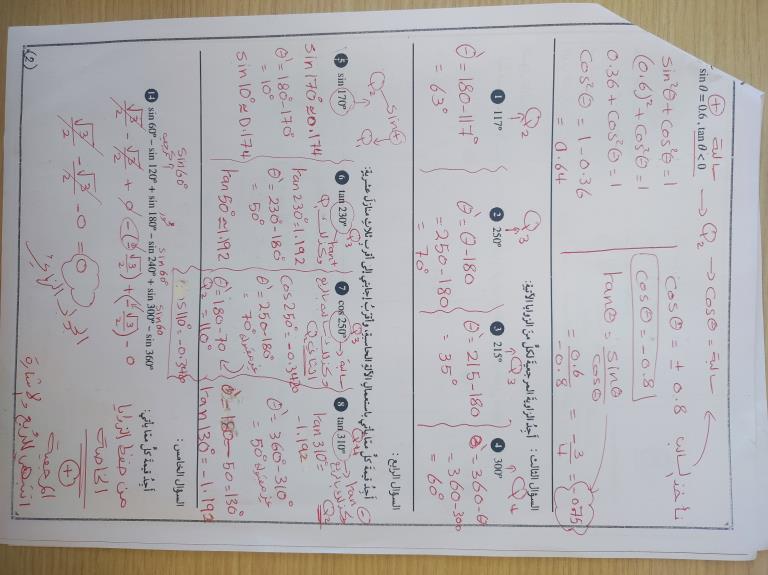 sin θ = 0.6 , tan θ < 0
(+) سالبة → Q2 → cos θ = سالبة
sin²θ + cos²θ = 1
(0.6)² + cos²θ = 1
0.36 + cos²θ = 1
cos²θ = 1 - 0.36
= 0.64
cos θ = ± 0.8
نأخذ السالب
cos θ = -0.8
tan θ = sin θ / cos θ
= 0.6 / -0.8 = -3/4 = -0.75
السؤال الثالث : أجدُ الزاوية المرجعية لكلٍّ من الزوايا الآتية:
1 117°
Q2
θ' = 180 - 117°
= 63°
2 250°
Q3
θ' = θ - 180
= 250 - 180
= 70°
3 215°
Q3
θ' = 215 - 180
= 35°
4 300°
Q4
θ' = 360 - θ
= 360 - 300
= 60°
السؤال الرابع :
أجدُ قيمة كلٍّ مما يأتي باستعمال الآلة الحاسبة، وأقرّبُ إجابتي إلى أقرب ثلاث منازل عشرية:
5 sin 170°
Q2 sin ⊕
Q1
sin 170° ≈ 0.174
θ' = 180° - 170°
= 10°
sin 10° ≈ 0.174
6 tan 230°
Q3 tan +
Q1
tan 230° = 1.192
θ' = 230° - 180°
= 50°
tan 50° ≈ 1.192
7 cos 250°
Q3 سالبة
Q2
cos 250° = -0.3420
θ' = 250 - 180
= 70°
θ = 180 - 70
Q2 = 110°
cos 110° = -0.3420
8 tan 310°
Q4 tan ⊖
Q2
tan 310° =
-1.192
θ' = 360° - 310°
= 50°
θ = 180 - 50 = 130°
tan 130° = -1.192
السؤال الخامس :
أجدُ قيمة كلٍّ مما يأتي:
14 sin 60° – sin 120° + sin 180° – sin 240° + sin 300° – sin 360°
sin 60° sin 60° sin 60
√3/2 - √3/2 + 0 - (-√3/2) + (-√3/2) - 0
√3/2 - √3/2 - 0 = 0
من حفظ الزوايا
الخاصة
(+)
المرجعية
انتبهوا للربع والإشارة
(2)